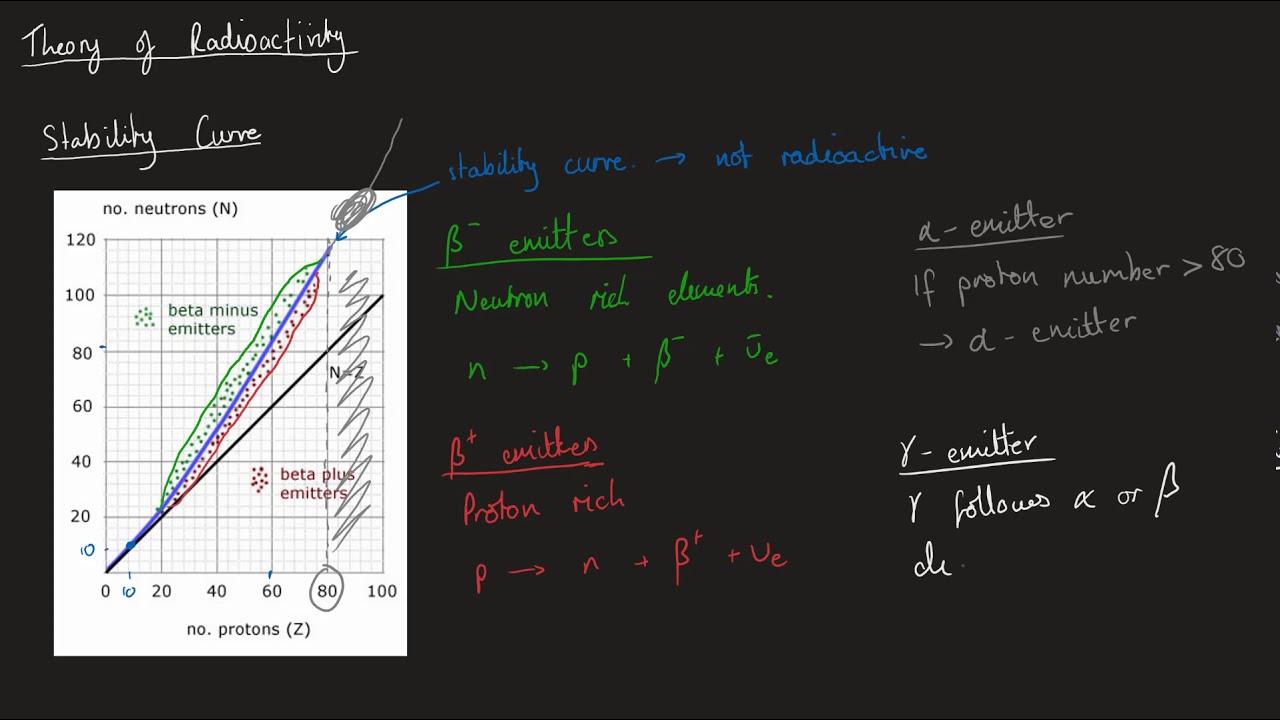 Theory of Radioactivity
Stability Curve
stability curve. → not radioactive
no. neutrons (N)
120
100
80
60
40
20
10
beta minus
emitters
N=Z
beta plus
emitters
0 10 20 40 60 80 100
no. protons (Z)
β⁻ emitters
Neutron rich elements.
n → p + β⁻ + ῡe
β⁺ emitters
Proton rich
p → n + β⁺ + υe
α - emitter
If proton number > 80
→ α - emitter
γ - emitter
γ follows α or β
de